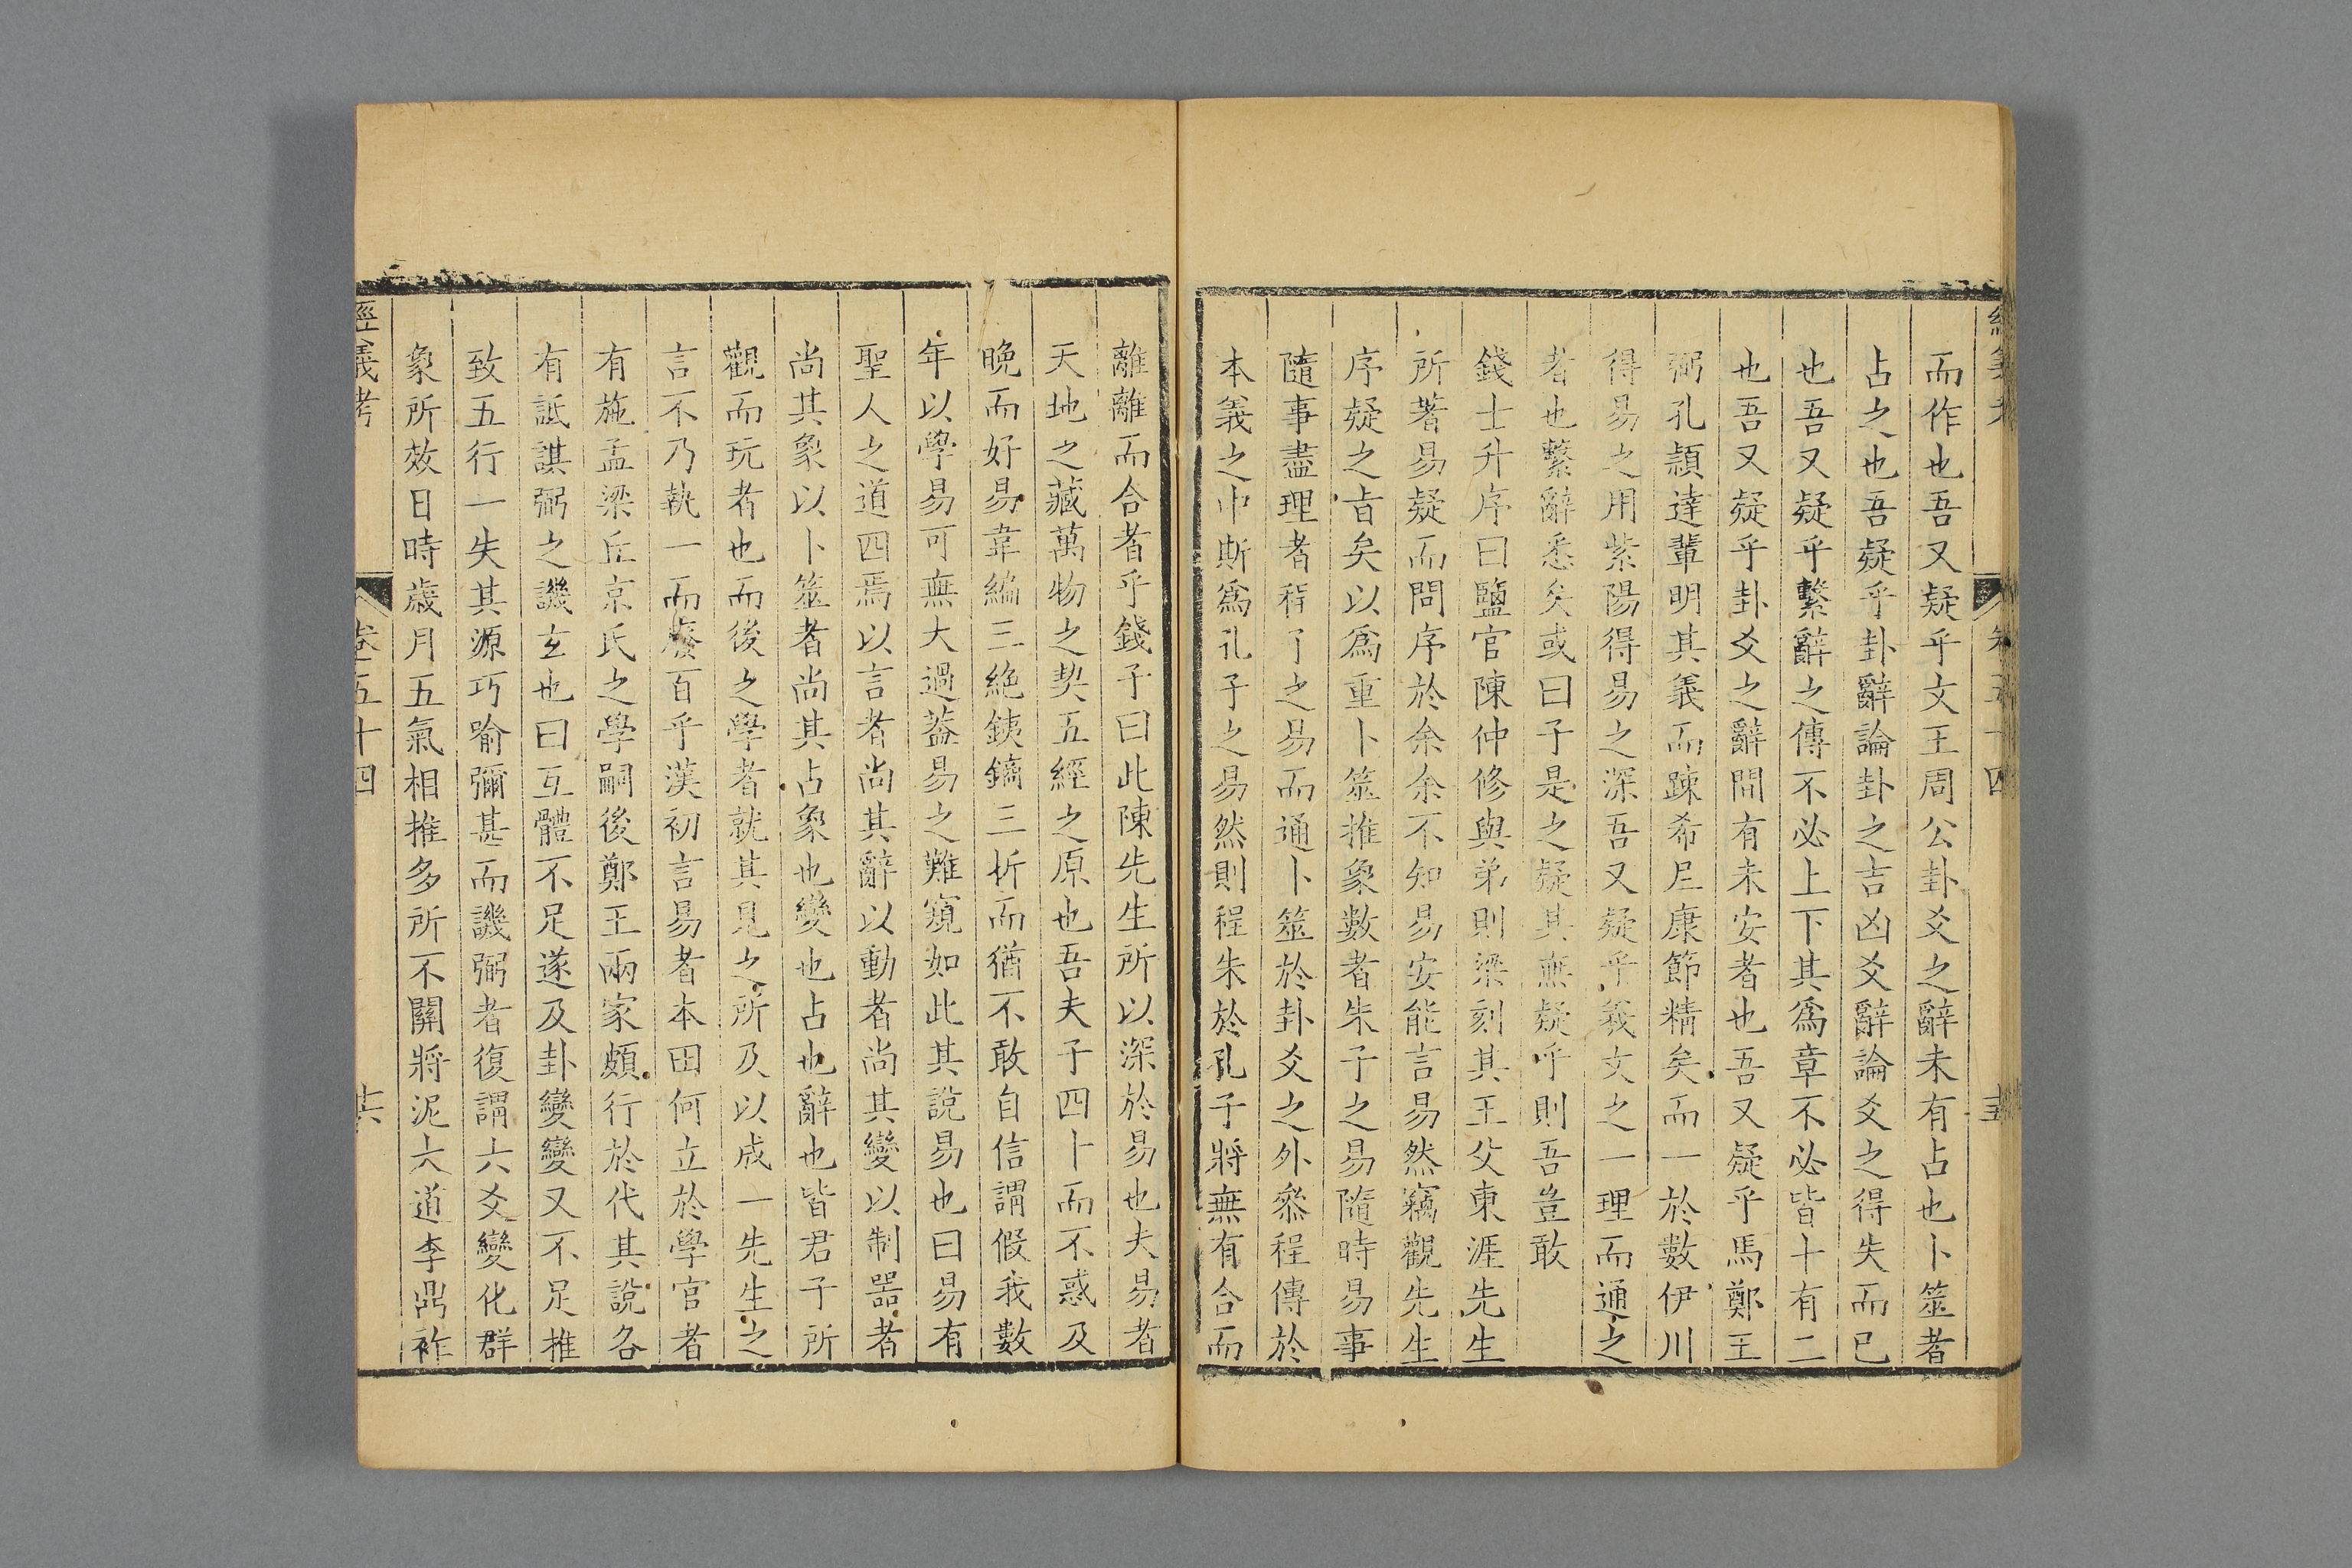 而作也吾又疑乎文王周公卦爻之辭未有占也卜筮者
占之也吾疑乎卦辭論卦之吉凶爻辭論爻之得失而已
也吾又疑乎繫辭之傳不必上下其為章不必皆十有二
也吾又疑乎卦爻之辭間有未安者也吾又疑乎馬鄭王
弼孔頴達輩明其義而踈希𡰱康節精矣而一於數伊川
得易之用紫陽得易之深吾又疑乎羲文之一理而通之
者也繫辭悉矣或曰子是之疑其無疑呼則吾豈敢
錢士升序曰鹽官陳仲修與弟則梁刻其王父東涯先生
所著易疑而問序於余余不知易安能言易然竊觀先生
序疑之㫖矣以爲重卜筮推象數者朱子之易隨時易事
隨事盡理者程子之易而通卜筮於卦爻之外叅程傳於
本義之中斯爲孔子之易然則程朱於孔子將無有合而
離離而合者乎錢子曰此陳先生所以深於易也夫易者
天地之藏萬物之契五經之原也吾夫子四十而不惑及
晚而好易韋編三絕鐵鏑三折而猶不敢自信謂假我數
年以學易可無大過葢易之難窺如此其說易也曰易有
聖人之道四焉以言者尚其辭以動者尚其變以制器者
尚其象以卜筮者尚其占象也變也占也辭也皆君子所
觀而玩者也而後之學者就其見之所及以成一先生之
言不乃執一而廢百乎漢初言易者本田何立於學官者
有施孟梁丘京氏之學嗣後鄭王兩家頗行於代其說各
有詆諆弼之譏玄也曰互體不足遂及卦變變又不足推
致五行一失其源巧喻彌甚而譏弼者復謂六爻變化群
象所效日時歲月五氣相推多所不關將泥大道李鼎祚
經義考 卷五十四 十六